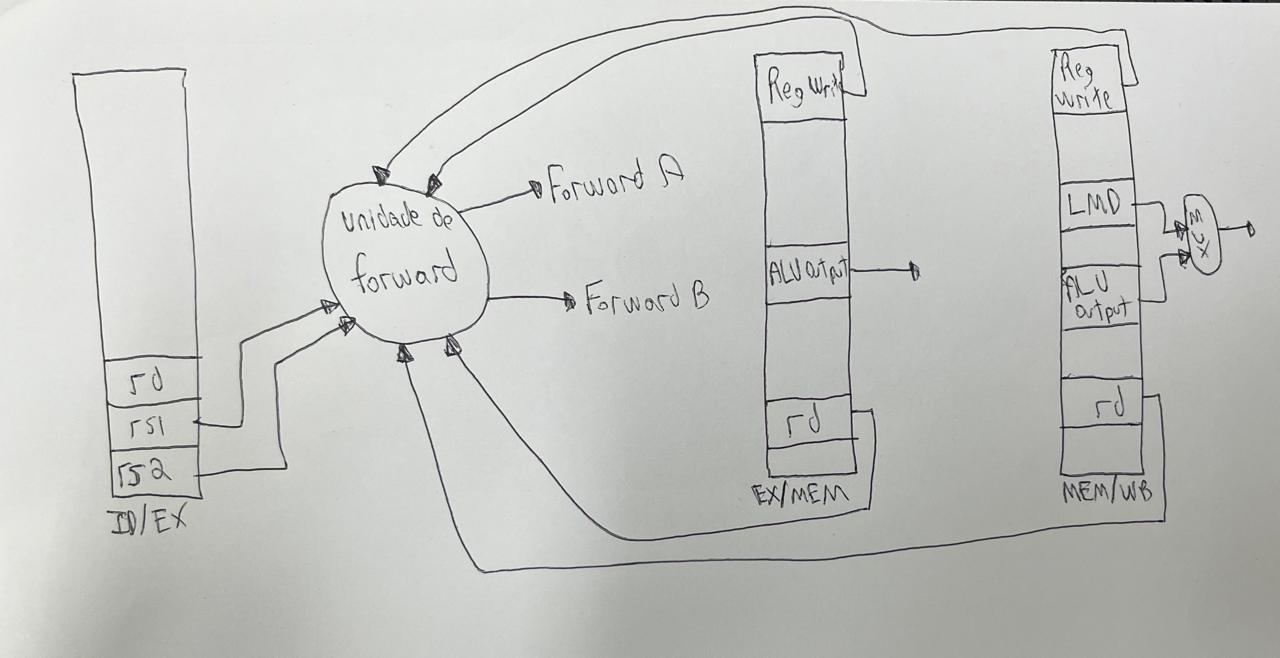 rd
rs1
rs2
ID/EX
unidade de
forward
Forward A
Forward B
Reg Write
ALU Output
rd
EX/MEM
Reg
Write
LMD
ALU
Output
rd
MEM/WB
MUX